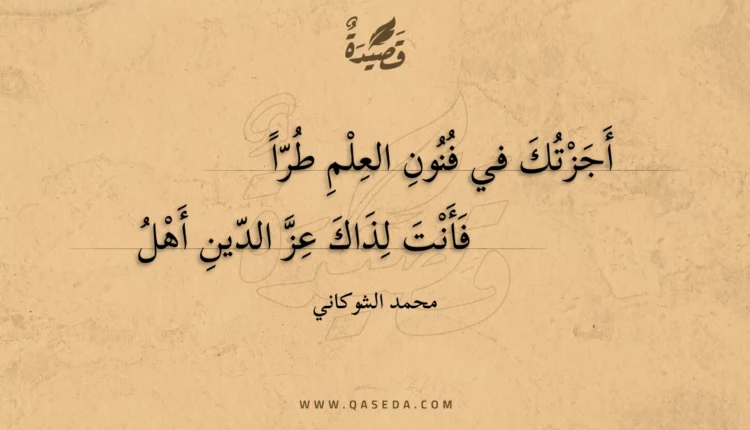 قَصِيْدَةٌ
أَجَزْتُكَ في فُنُونِ العِلْمِ طُرّاً
فَأَنْتَ لِذَاكَ عِزَّ الدّينِ أَهْلُ
محمد الشوكاني
WWW.QASEDA.COM